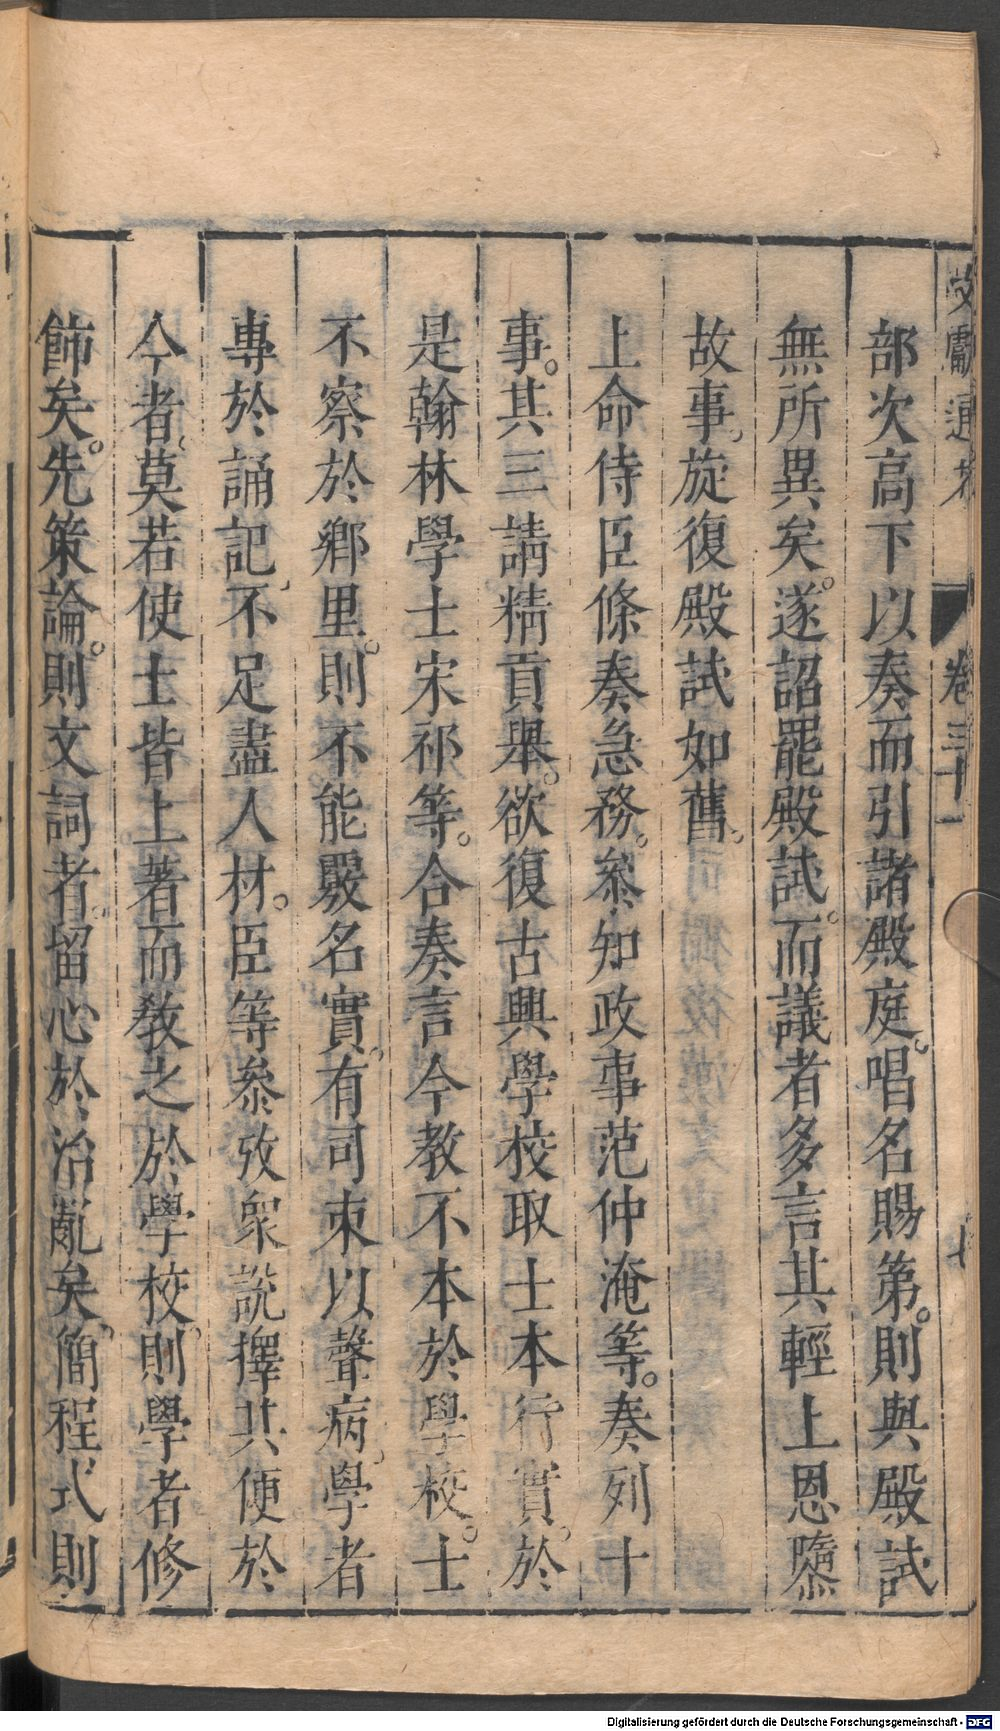 文獻通考 卷三十一 七
部次高下以奏而引諸殿庭。唱名賜第。則與殿試
無所異矣。遂詔罷殿試。而議者多言其輕上恩隳
故事。旋復殿試如舊。
上命侍臣條奏急務。叅知政事范仲淹等。奏列十
事。其三請精貢舉。欲復古興學校取士本行實。於
是翰林學士宋祁等。合奏言今教不本於學校。士
不察於鄉里。則不能覈名實。有司束以聲病。學者
專於誦記。不足盡人材。臣等叅攷衆說擇其便於
今者。莫若使士皆土著而教之於學校。則學者修
飾矣。先策論。則文詞者。留心於治亂矣。簡程式則
Digitalisierung gefördert durch die Deutsche Forschungsgemeinschaft - DFG